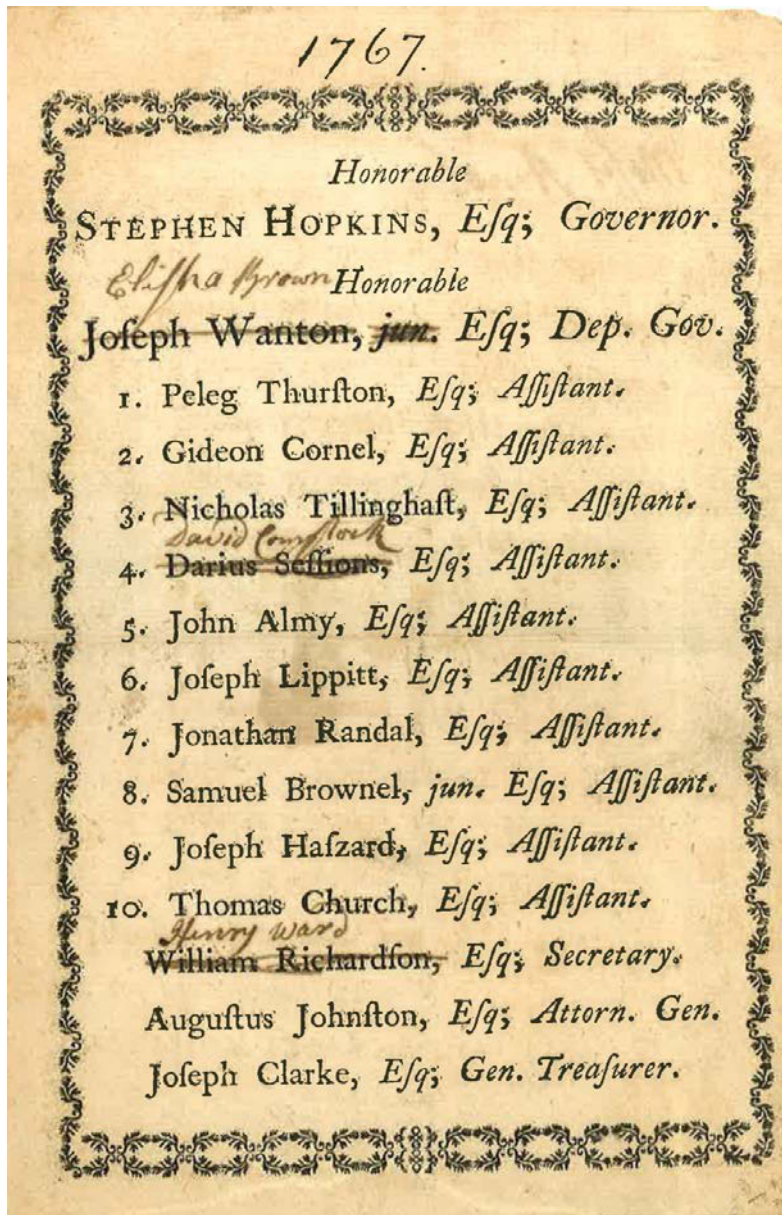 1767.
Honorable
STEPHEN HOPKINS, Eſq; Governor.
Eliſha Brown Honorable
Joſeph Wanton, jun. Eſq; Dep. Gov.
1. Peleg Thurſton, Eſq; Aſſiſtant.
2. Gideon Cornel, Eſq; Aſſiſtant.
3. Nicholas Tillinghaſt, Eſq; Aſſiſtant.
David Comſtock
4. Darius Seſſions, Eſq; Aſſiſtant.
5. John Almy, Eſq; Aſſiſtant.
6. Joſeph Lippitt, Eſq; Aſſiſtant.
7. Jonathan Randal, Eſq; Aſſiſtant.
8. Samuel Brownel, jun. Eſq; Aſſiſtant.
9. Joſeph Haſzard, Eſq; Aſſiſtant.
10. Thomas Church, Eſq; Aſſiſtant.
Henry Ward
William Richardſon, Eſq; Secretary.
Auguſtus Johnſton, Eſq; Attorn. Gen.
Joſeph Clarke, Eſq; Gen. Treaſurer.